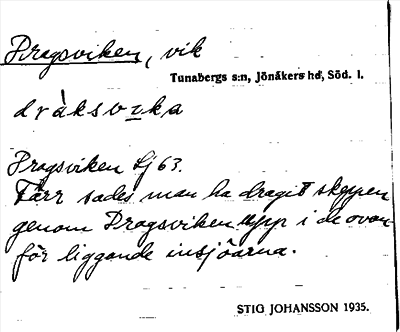 Dragsviken, vik
Tunabergs s:n, Jönåkers hd, Söd. l.
dràksvıka
Dragsviken Gj 63.
Förr sades man ha dragit skeppen
genom Dragsviken upp i de ovan-
för liggande insjöarna.
STIG JOHANSSON 1935.